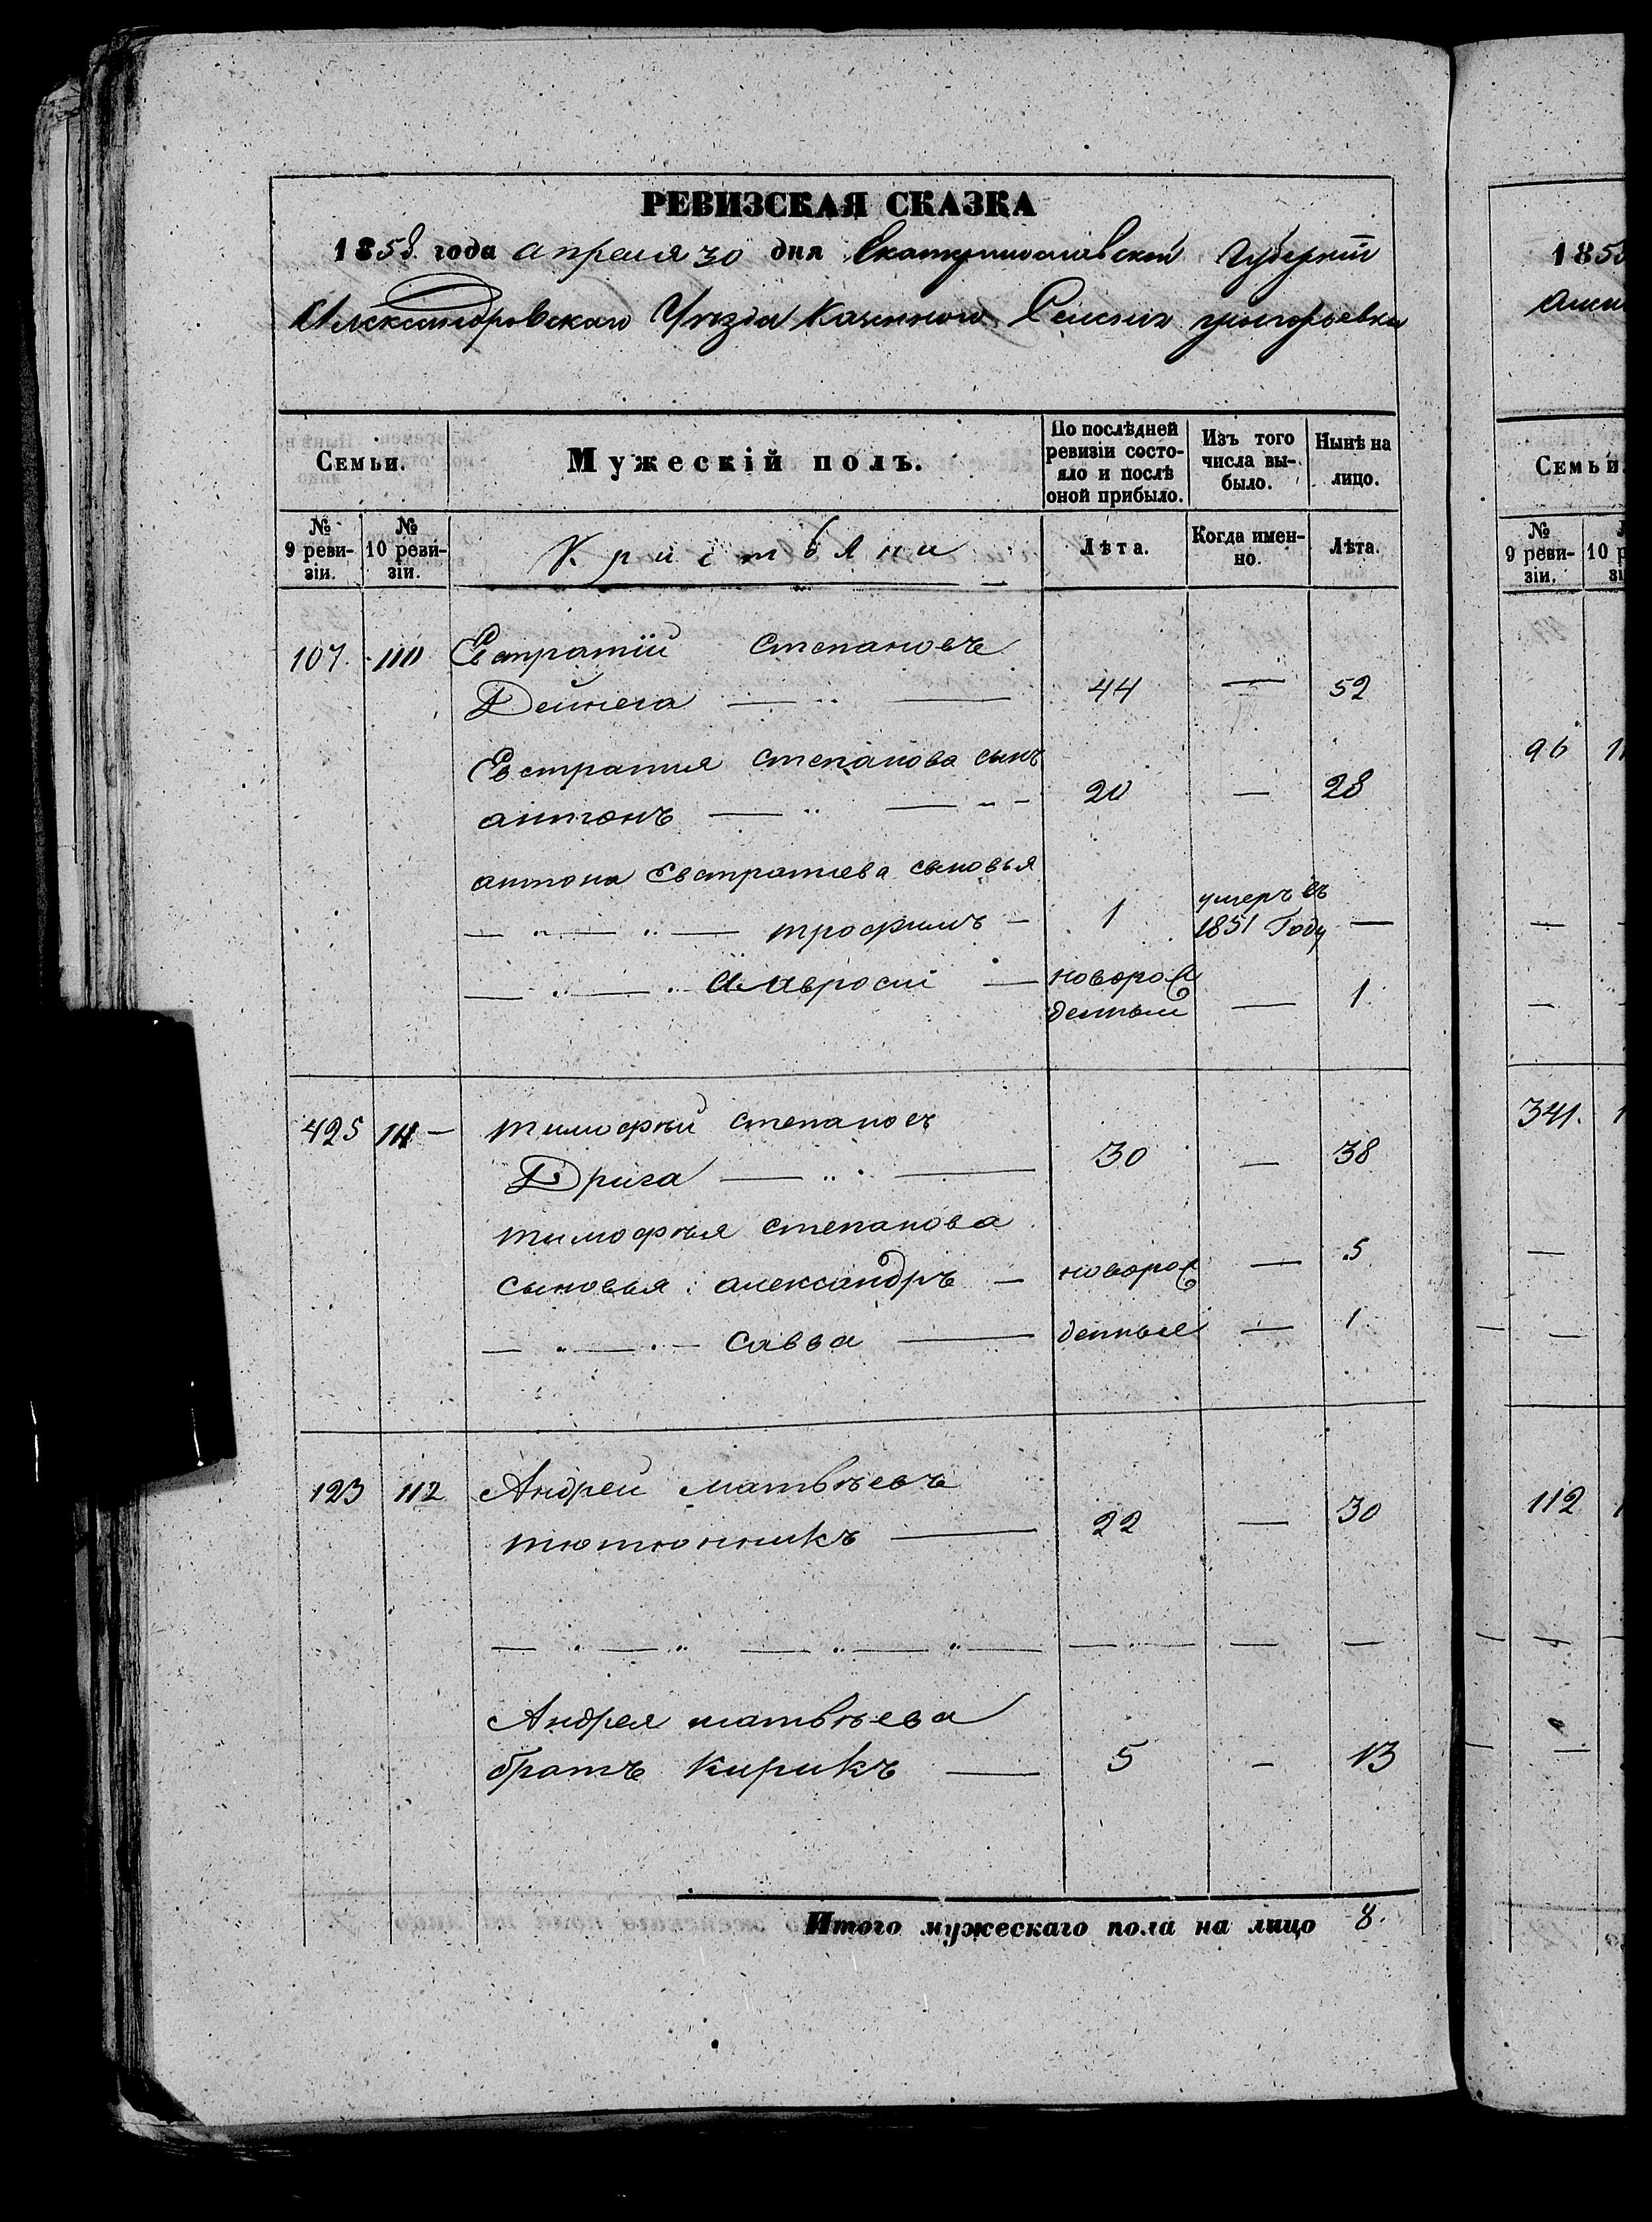 РЕВИЗСКАЯ СКАЗКА
1858 года апреля 30 дня Екатеринославской Губернїи
Александровскаго Уѣзда Казенного Селенія григорьевки
Семьи.
Мужескій полъ.
По послѣдней ревизіи состояло и послѣ оной прибыло.
Изъ того числа выбыло.
Нынѣ на лицо.
№ 9 ревизіи.
№ 10 ревизіи.
Кристьяни
Лѣта.
Когда именно.
Лѣта.
107. 110 Евстратїй Степановъ
Дейнега — „ — 44 — 52
Евстратия Степанова сынъ
антонъ — „ — „ - 20 — 28
антона Евстратиева сыновья
— „ — „ — трофимъ — 1 умеръ въ 1851 Году —
— „ — „ Амвросий — новорожденный — 1
425 111 — тимофѣй степановъ
Дрига — „ — 30 — 38
тимофѣя степанова
сыновья: александръ — новорож — 5
— „ — „ — савва — денные — 1
123 112 Андрей матвѣевъ
тютюнникъ — 22 — 30
— „ — „ — „ — „ — — „ — — —
Андрея матвѣева
братъ Кирикъ — 5 — 13
Итого мужескаго пола на лицо 8.
185
Семьи
№ 9 ревизіи.
10
96
341.
112